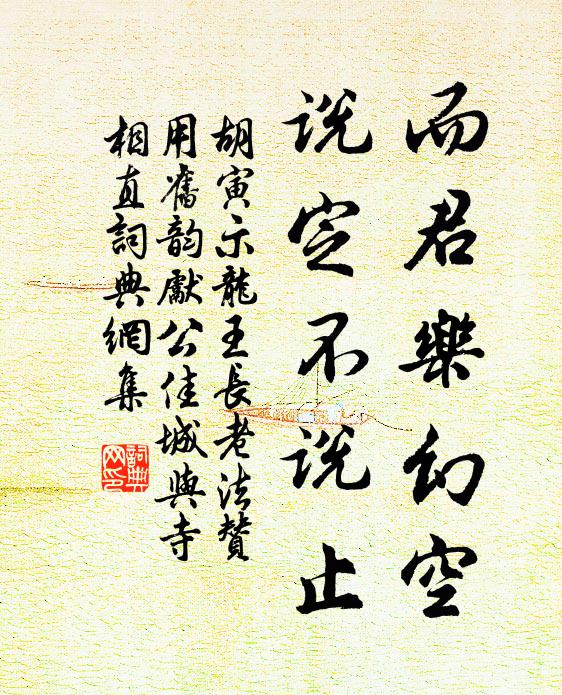 而君樂幻空
說空不說止
胡寅示龍王長老法贊
用舊韵獻公佳城與寺
相直詞典網集
詞典網印